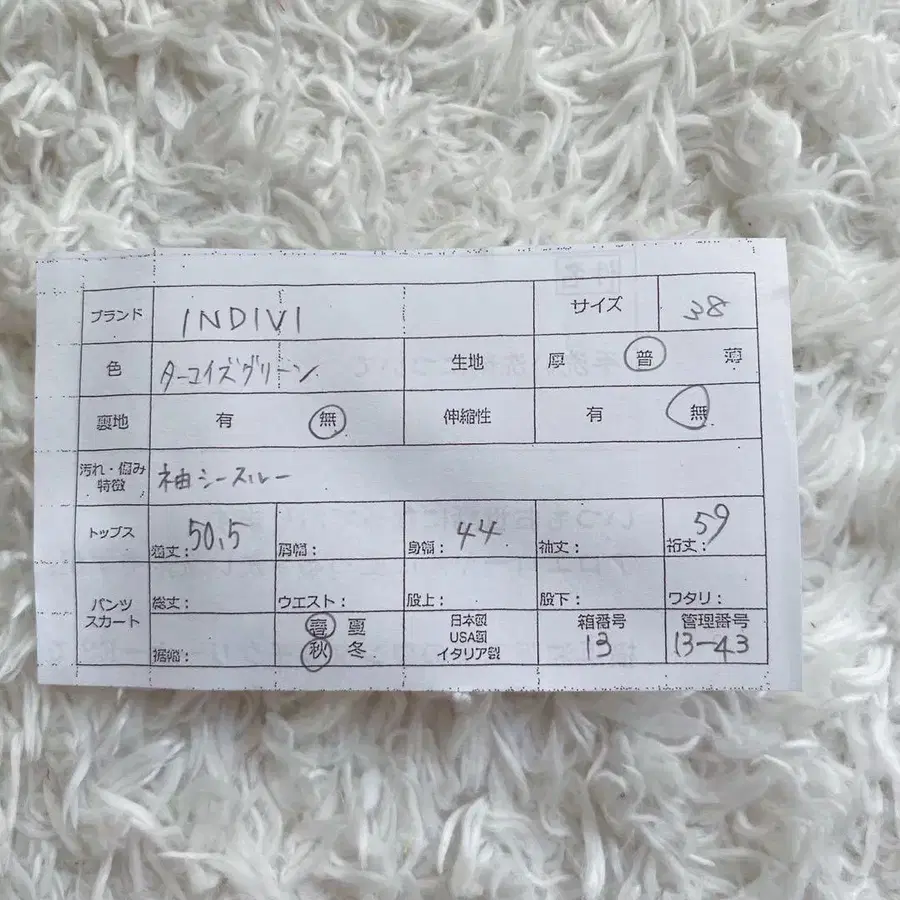 ブランド INDIVI サイズ 38
色 ターコイズグリーン 生地 厚 普 薄
裏地 有 無 伸縮性 有 無
汚れ・傷み
特徴 袖シースルー
トップス 着丈: 50.5 肩幅: 身幅: 44 袖丈: 裄丈: 59
パンツ
スカート 総丈: ウエスト: 股上: 股下: ワタリ:
裾幅: 春 夏
秋 冬
日本製
USA製
イタリア製
箱番号
13
管理番号
13-43